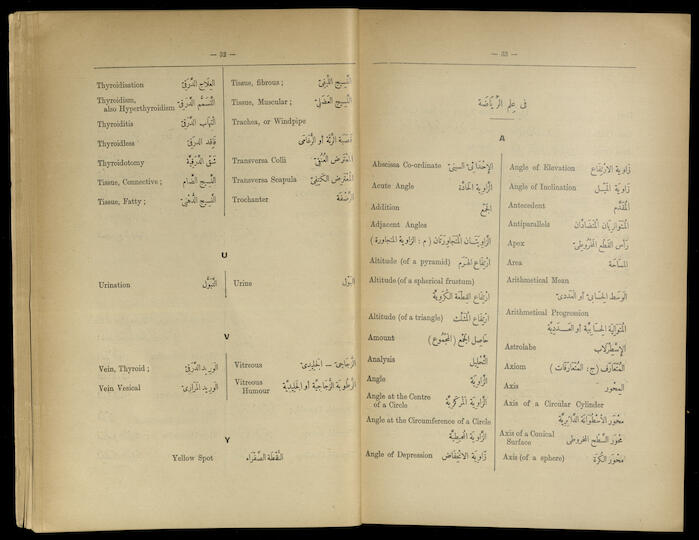 — 32 —
Thyroidisation العِلَاج الدَّرَقِيّ
Thyroidism,
also Hyperthyroidism التَّسَمُّم الدَّرَقِيّ
Thyroiditis الْتِهَاب الدَّرَقِيّ
Thyroidless فَاقِد الدَّرَقِيّ
Thyroidotomy شَقّ الدَّرَقُوَّة
Tissue, Connective; النَّسِيج الضَّام
Tissue, Fatty; النَّسِيج الدُّهْنِيّ
Tissue, fibrous; النَّسِيج اللِّيفِيّ
Tissue, Muscular; النَّسِيج العَضَلِيّ
Trachea, or Windpipe
قَصَبَة الرِّئَة أو الرُّغَامَى
Transversa Colli المُعْتَرِض العُنُقِيّ
Transversa Scapula المُعْتَرِض الكَتِفِيّ
Trochanter الرَّضْفَة
U
Urination التَّبَوُّل
Urine البَوْل
V
Vein, Thyroid; الوَرِيد الدَّرَقِيّ
Vein Vesical الوَرِيد المَرَارِيّ
Vitreous الزُّجَاجِيّ – الجَلِيدِيّ
Vitreous
Humour الرُّطُوبَة الزُّجَاجِيَّة أو الجَلِيدِيَّة
Y
Yellow Spot النُّقْطَة الصَّفْرَاء
— 33 —
فى عِلم الرِّيَاضَة
A
Abscissa Co-ordinate الإحْدَاثِىّ السِينِىّ
Acute Angle الزَّاوِيَة الحَادَّة
Addition الجَمْع
Adjacent Angles
الزَّاوِيَتَـان المُتَجَاوِرَتَان (م : الزاوية المتجاورة)
Altitude (of a pyramid) ارْتِفَاع الهَرَم
Altitude (of a spherical frustum)
ارْتِفَاع القِطْعَة الكُرَوِيَّة
Altitude (of a triangle) ارْتِفَاع المُثَلَّث
Amount حَاصِل الجَمْع (المَجْمُوع)
Analysis التَّحْلِيل
Angle الزَّاوِيَة
Angle at the Centre
of a Circle الزَّاوِيَة المَرْكَزِيَّة
Angle at the Circumference of a Circle
الزَّاوِيَة المُحِيطِيَّة
Angle of Depression زَاوِيَة الانْخِفَاض
Angle of Elevation زَاوِيَة الارْتِفَاع
Angle of Inclination زَاوِيَة المَيْل
Antecedent المُقَدَّم
Antiparallels المُتَوَازِيَان المُتَضَادَّان
Apex رَأْس القَطْع المَخْرُوطِىّ
Area المِسَاحَة
Arithmetical Mean
الوَسَط الحِسَابِىّ أو العَدَدِىّ
Arithmetical Progression
المُتَوَالِيَة الحِسَابِيَّة أو العَـدَدِيَّة
Astrolabe الإسْطُرْلَاب
Axiom المُتَعَارَف (ج : المُتَعَارَفَات)
Axis المِحْوَر
Axis of a Circular Cylinder
مِحْوَر الأُسْطُوَانَة الدَّائِرِيَّة
Axis of a Conical
Surface مِحْوَر السَّطْح المَخْرُوطِى
Axis (of a sphere) مِحْوَر الكُرَة